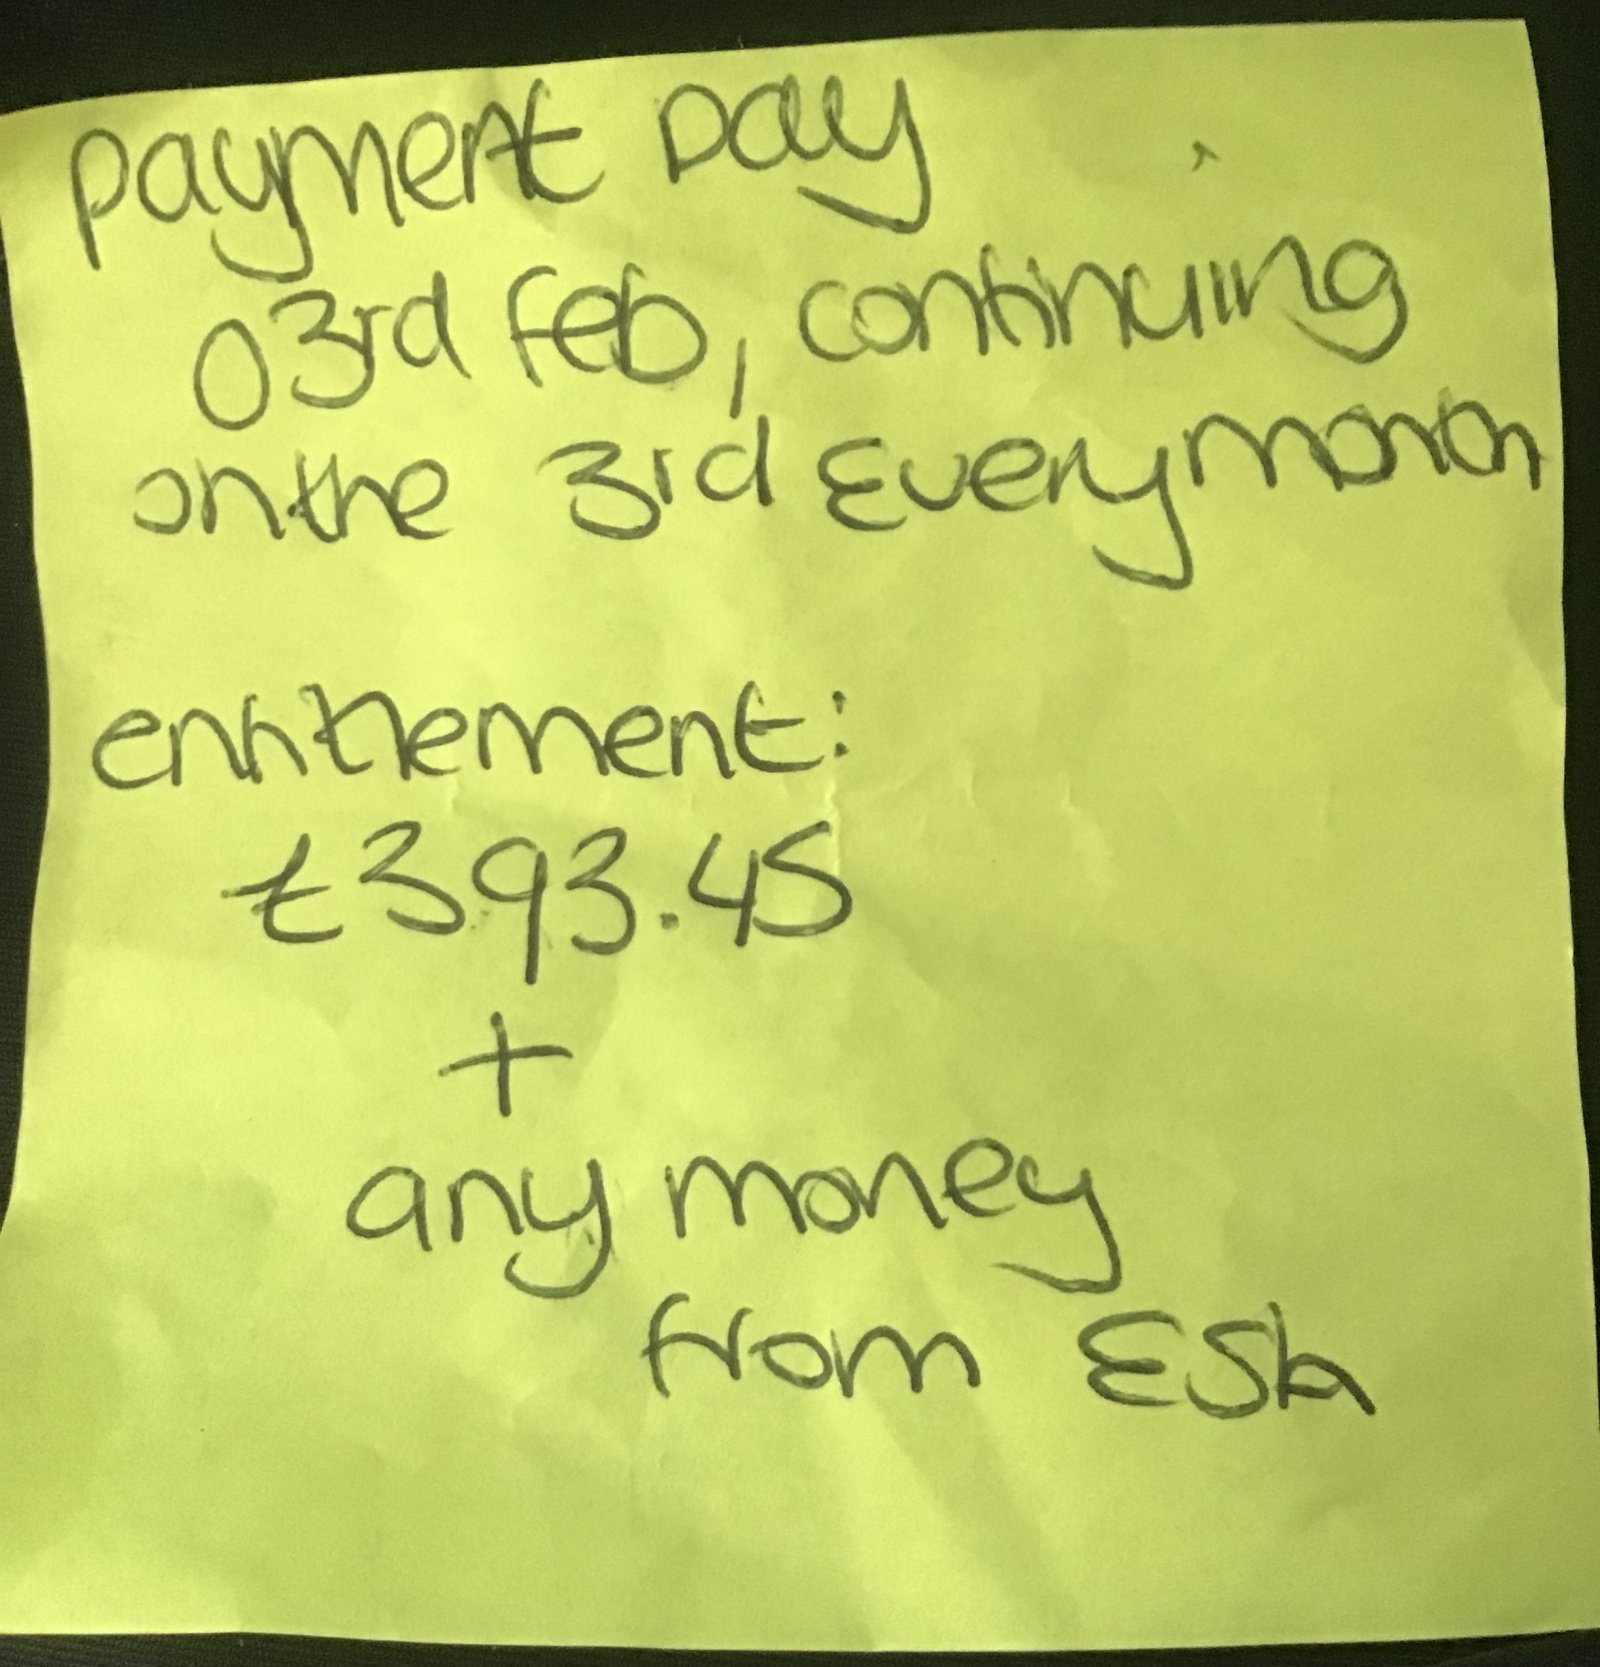 Payment Day
03rd Feb, continuing
on the 3rd Every month
entitlement:
£393.45
+
any money
from ESA